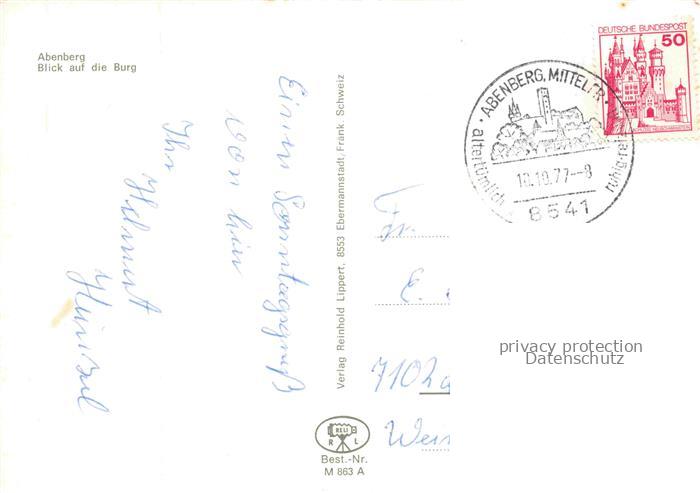 Abenberg
Blick auf die Burg
Einen Sonntagsgruß
von hier
Ihr
Helmut
Verlag Reinhold Lippert, 8553 Ebermannstadt/Fränk Schweiz
RELI
R L
Best.-Nr.
M 863 A
DEUTSCHE BUNDESPOST
50
· ABENBERG, MITTELFR ·
altertümlich
ruhig-rei
10.10.77--8
8541
Fr.
E.
7102
Wei
privacy protection
Datenschutz